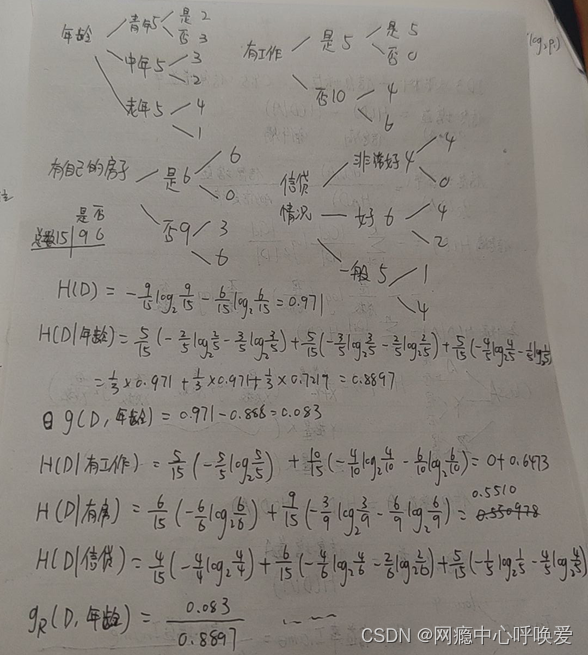 年龄 青年5 是2 否3
中年5 3 2
老年5 4 1
有工作 是5 是5 否0
否10 4 6
(log₂pᵢ)
有自己的房子 是6 6 0
否9 3 6
信贷情况 非常好4 4 0
好6 4 2
一般5 1 4
是 否
总数15 | 9 6
H(D) = -9/15 log₂ 9/15 - 6/15 log₂ 6/15 = 0.971
H(D|年龄) = 5/15(-2/5 log₂ 2/5 - 3/5 log₂ 3/5) + 5/15(-3/5 log₂ 3/5 - 2/5 log₂ 2/5) + 5/15(-4/5 log₂ 4/5 - 1/5 log₂ 1/5)
= 1/3 × 0.971 + 1/3 × 0.971 + 1/3 × 0.7219 = 0.8897
g(D, 年龄) = 0.971 - 0.888 = 0.083
H(D|有工作) = 5/15(-5/5 log₂ 5/5) + 10/15(-4/10 log₂ 4/10 - 6/10 log₂ 6/10) = 0 + 0.6473
H(D|有房) = 6/15(-6/6 log₂ 6/6) + 9/15(-3/9 log₂ 3/9 - 6/9 log₂ 6/9) = 0.5510
H(D|信贷) = 4/15(-4/4 log₂ 4/4) + 6/15(-4/6 log₂ 4/6 - 2/6 log₂ 2/6) + 5/15(-1/5 log₂ 1/5 - 4/5 log₂ 4/5)
g_R(D, 年龄) = 0.083/0.8897 ……
CSDN @网瘾中心呼唤爱